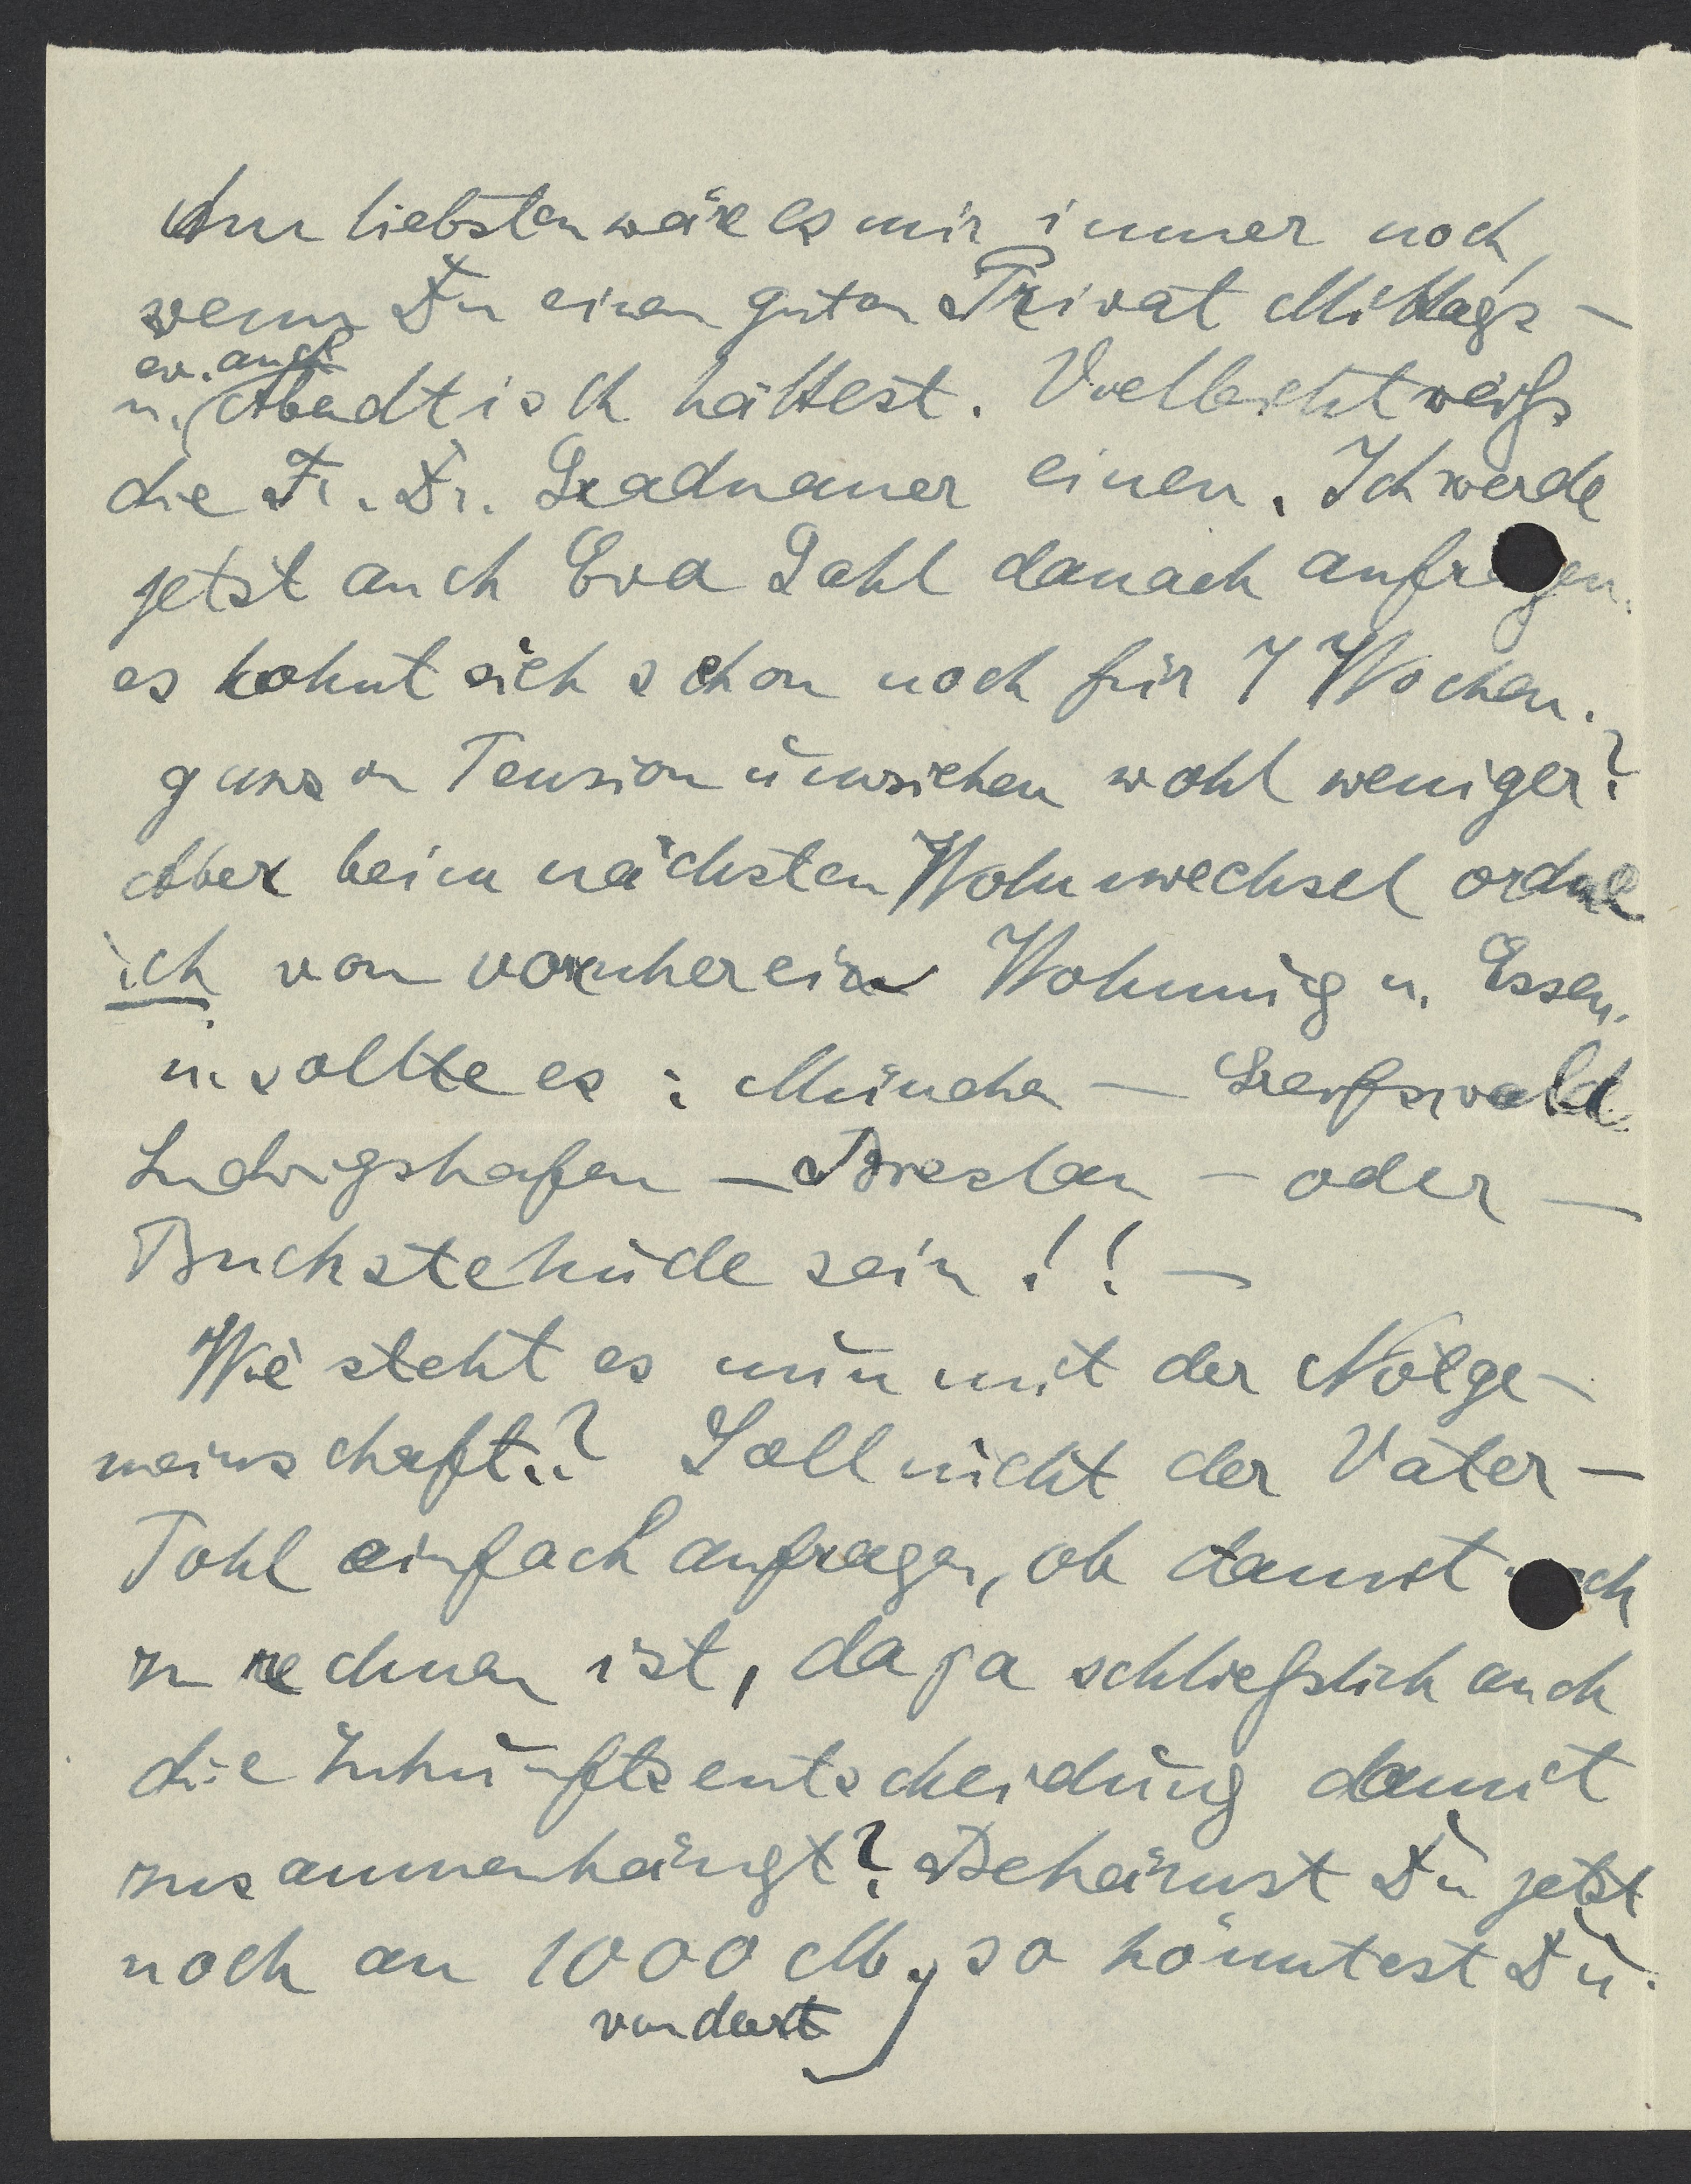 Am liebsten wäre es mir immer noch,
wenn Du einen guten Privat Mittags-
ev. auch
u. Abendtisch hättest. Vielleicht weiß
die Fr. Dr. Gradnauer einen. Ich werde
jetzt auch Eva Pohl danach anfragen.
es lohnt sich schon noch für 7 Wochen.
ganz in Pension umziehen wohl weniger?
Aber beim nächsten Wohnwechsel ordne
ich von vornherein Wohnung u. Essen.
u. sollte es: München - Greifswald
Ludwigshafen - Breslau - oder -
Buchstehude sein!! -
Wie steht es nun mit der Notge-
meinschaft.? Soll nicht der Vater-
Pohl einfach anfragen, ob damit noch
zu rechnen ist, da ja schließlich auch
die Zukunftsentscheidung damit
zusammenhängt? Bekämst Du jetzt
noch an 1000 M., so könntest Du
von dort